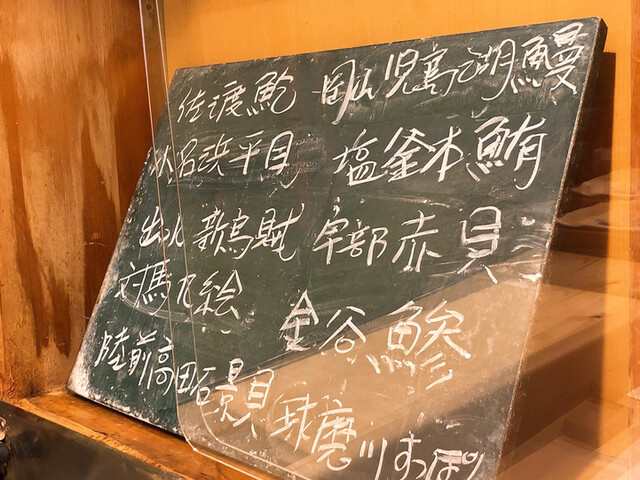 佐渡鮑
小名浜平目
出水 新烏賊
対馬九絵
陸前高田石景貝
岡山児島湖鰻
塩釜本鮪
宇部赤貝
金谷鯵
球磨川すっぽん